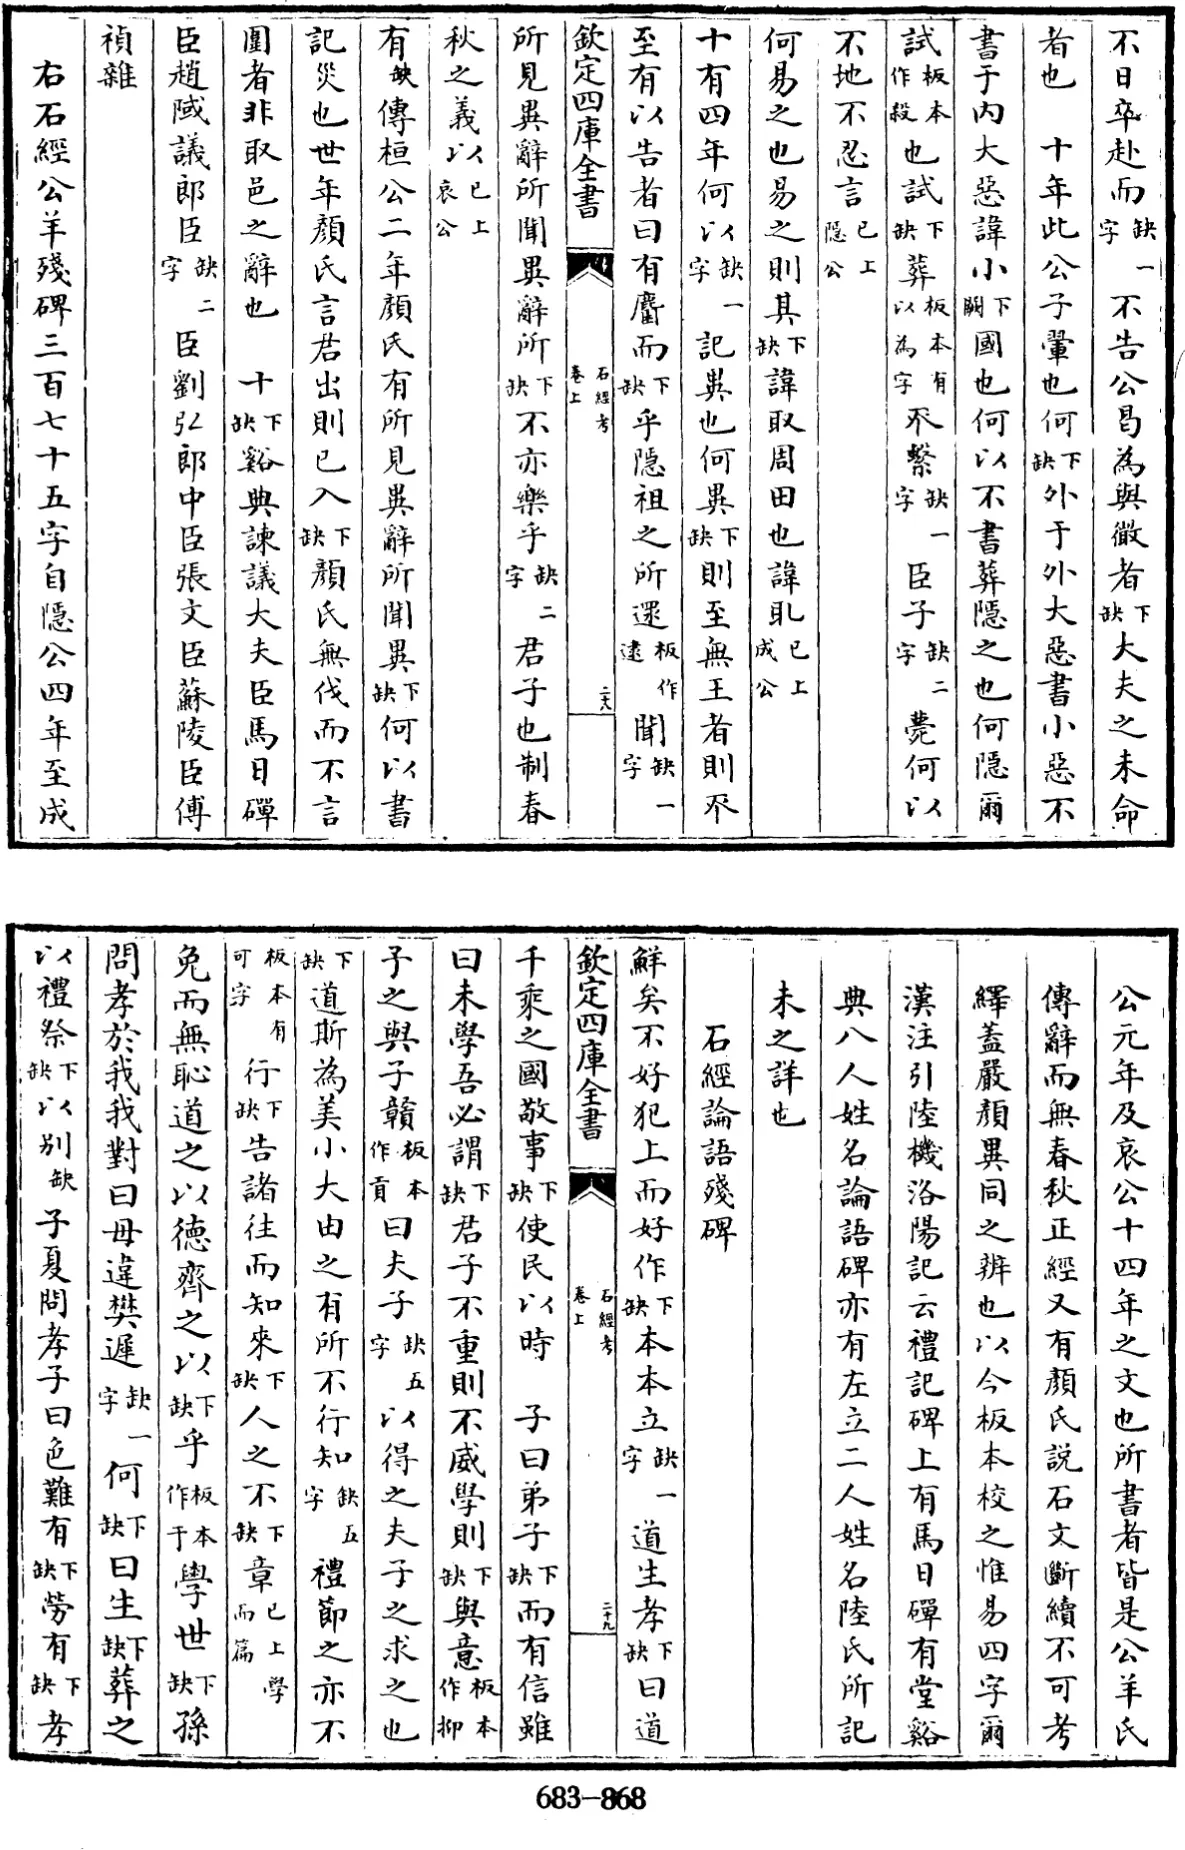 不日卒赴而缺一字不告公曷為與微者下缺大夫之未命
者也　十年此公子翬也何下缺外于外大惡書小惡不
書于内大惡諱小下闕國也何以不書葬隱之也何隱爾
試板本作殺也試下缺葬板本有以為字不繫缺一字臣子缺二字薨何以
不地不忍言已上隱公
何易之也易之則其下缺諱取周田也諱㫁已上成公
十有四年何以缺一字記異也何異下缺則至無王者則不
至有以告者曰有麕而下缺乎隱祖之所還板作逮聞缺一字
欽定四庫全書　石經考卷上　二十八
所見異辭所聞異辭所下缺不亦樂乎缺二字君子也制春
秋之義以已上哀公
有缺傳桓公二年顏氏有所見異辭所聞異下缺何以書
記災也世年顏氏言君出則已入下缺顏氏無伐而不言
圍者非取邑之辭也　十下缺谿典諫議大夫臣馬日磾
臣趙㦽議郎臣缺二字臣劉弘郎中臣張文臣蘇陵臣傅
禎雜
右石經公羊殘碑三百七十五字自隱公四年至成
公元年及哀公十四年之文也所書者皆是公羊氏
傳辭而無春秋正經又有顏氏說石文斷續不可考
繹蓋嚴顏異同之辨也以今板本校之惟易四字爾
漢注引陸機洛陽記云禮記碑上有馬日磾有堂谿
典八人姓名論語碑亦有左立二人姓名陸氏所記
未之詳也
石經論語殘碑
鮮矣不好犯上而好作下缺本本立缺一字道生孝下缺曰道
欽定四庫全書　石經考卷上　二十九
千乘之國敬事下缺使民以時　子曰弟子下缺而有信雖
曰未學吾必謂下缺君子不重則不威學則下缺與意板本作抑
子之與子贛板本作貢曰夫子缺五字以得之夫子之求之也
下缺道斯為美小大由之有所不行知缺五字禮節之亦不
板本有可字行下缺告諸往而知來下缺人之不下缺章已上學而篇
免而無恥道之以德齊之以下缺乎板本作于學世下缺孫
問孝於我我對曰毋違樊遲缺一字何下缺曰生下缺葬之
以禮祭下缺以别缺子夏問孝子曰色難有下缺勞有下缺孝
683-868